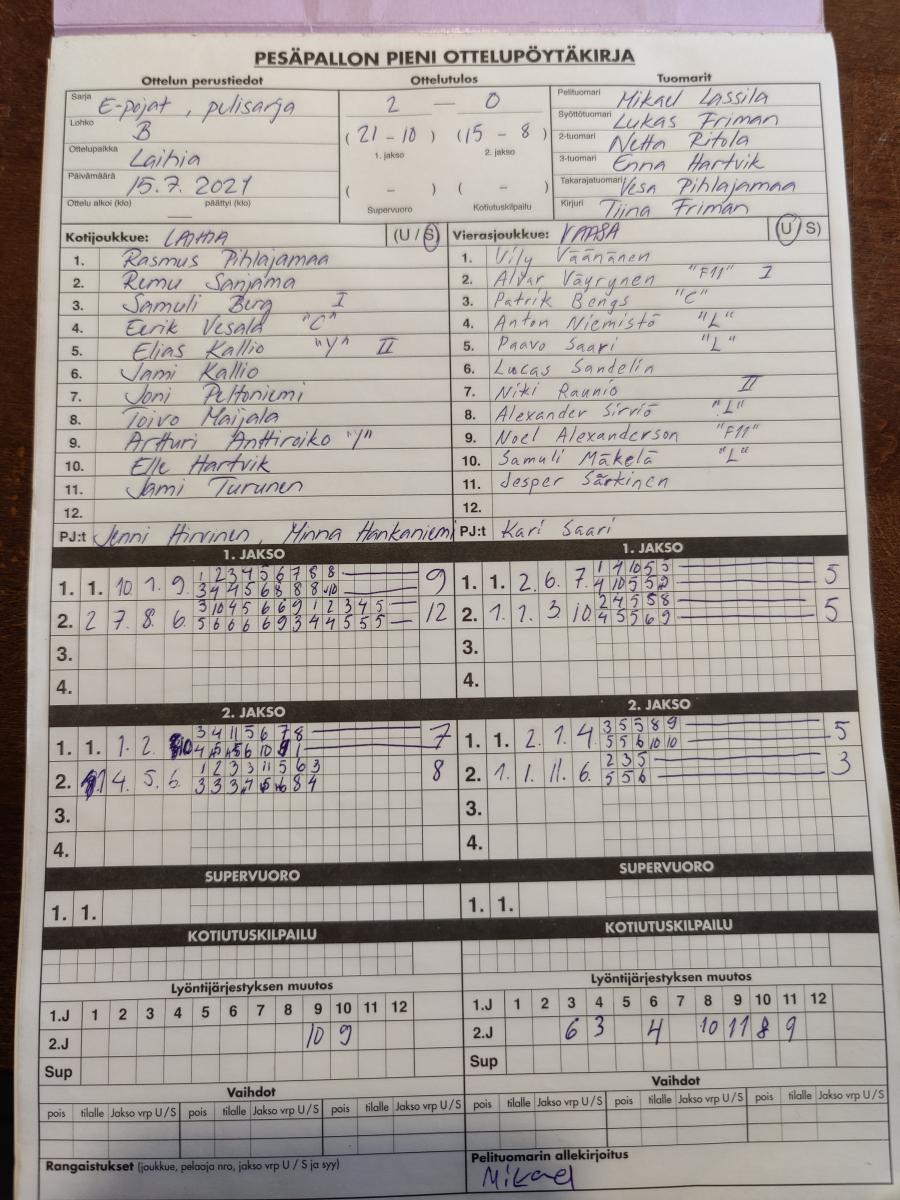 PESÄPALLON PIENI OTTELUPÖYTÄKIRJA
Ottelun perustiedot Ottelutulos Tuomarit
Sarja E-pojat, pulisarja
Lohko B
Ottelupaikka Laihia
Päivämäärä 15.7. 2021
Ottelu alkoi (klo) päättyi (klo)
2 — 0
( 21 - 10 ) (15 - 8 )
1. jakso 2. jakso
( - ) ( - )
Supervuoro Kotiutuskilpailu
Pelituomari Mikael Lassila
Syöttötuomari Lukas Friman
2-tuomari Netta Ritola
3-tuomari Enna Hartvik
Takarajatuomari Vesa Pihlajamaa
Kirjuri Tiina Friman
Kotijoukkue: LAIHIA (U / S)
1. Rasmus Pihlajamaa
2. Remu Sanjama
3. Samuli Berg I
4. Eerik Vesala "C"
5. Elias Kallio "Y" II
6. Jami Kallio
7. Joni Peltoniemi
8. Toivo Maijala
9. Artturi Anttiroiko "Y"
10. Elle Hartvik
11. Jami Turunen
12.
PJ:t Jenni Hirvinen, Minna Hankaniemi
Vierasjoukkue: VAASA (U / S)
1. Vily Väänänen
2. Alvar Väyrynen "F11" I
3. Patrik Bengs "C"
4. Anton Niemistö "L"
5. Paavo Saari "L"
6. Lucas Sandelin
7. Niki Raunio II
8. Alexander Sirviö "L"
9. Noel Alexanderson "F11"
10. Samuli Mäkelä "L"
11. Jesper Särkinen
12.
PJ:t Kari Saari
1. JAKSO
1. 1. 10 1. 9. 1 2 3 4 5 6 7 8 8 9
3 4 4 5 6 8 8 8 10
2. 2 7. 8. 6. 3 10 4 5 6 6 9 1 2 3 4 5 12
5 6 6 6 6 9 3 4 4 5 5 5
3.
4.
1. JAKSO
1. 1. 2. 6. 7. 1 4 10 5 5 5
4 10 5 5
2. 1. 1. 3. 10. 2 4 5 5 8 5
4 5 5 6 9
3.
4.
2. JAKSO
1. 1. 1. 2. 10 3 4 11 5 6 7 8 7
2. 4. 5. 6. 1 2 3 3 11 5 6 3 8
3.
4.
2. JAKSO
1. 1. 2. 1. 4. 3 5 5 8 9 5
5 5 6 10 10
2. 1. 1. 11. 6. 2 3 5 3
5 5 6
3.
4.
SUPERVUORO
1. 1.
SUPERVUORO
1. 1.
KOTIUTUSKILPAILU
KOTIUTUSKILPAILU
Lyöntijärjestyksen muutos
1.J 1 2 3 4 5 6 7 8 9 10 11 12
2.J 10 9
Sup
Lyöntijärjestyksen muutos
1.J 1 2 3 4 5 6 7 8 9 10 11 12
2.J 6 3 4 10 11 8 9
Sup
Vaihdot
pois tilalle Jakso vrp U / S pois tilalle Jakso vrp U / S pois tilalle Jakso vrp U / S
Vaihdot
pois tilalle Jakso vrp U / S pois tilalle Jakso vrp U / S pois tilalle Jakso vrp U / S
Rangaistukset (joukkue, pelaaja nro, jakso vrp U / S ja syy)
Pelituomarin allekirjoitus
Mikael